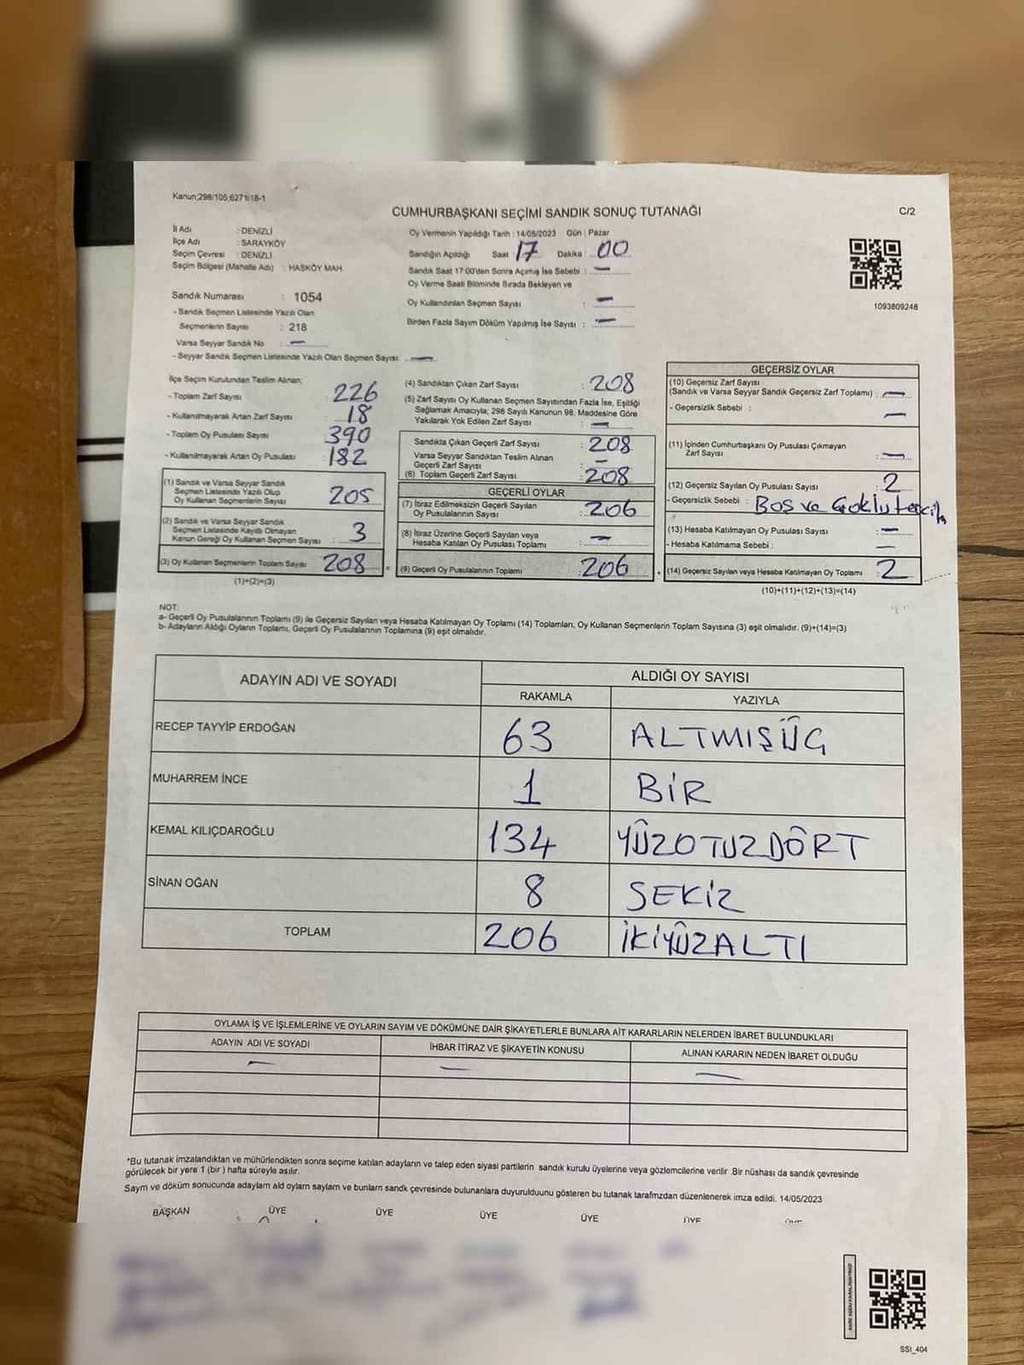 Kanun;298/105;6271/18-1
CUMHURBAŞKANI SEÇİMİ SANDIK SONUÇ TUTANAĞI
C/2
İl Adı : DENİZLİ
İlçe Adı : SARAYKÖY
Seçim Çevresi : DENİZLİ
Seçim Bölgesi (Mahalle Adı) : HASKÖY MAH.
Sandık Numarası : 1054
- Sandık Seçmen Listesinde Yazılı Olan
Seçmenlerin Sayısı : 218
Varsa Seyyar Sandık No : —
- Seyyar Sandık Seçmen Listesinde Yazılı Olan Seçmen Sayısı: —
Oy Vermenin Yapıldığı Tarih : 14/05/2023 Gün : Pazar
Sandığın Açıldığı Saat : 17 Dakika : 00
Sandık Saat 17:00'den Sonra Açımış İse Sebebi : —
Oy Verme Saati Bitiminde Sırada Bekleyen ve
Oy Kullandırılan Seçmen Sayısı : —
Birden Fazla Sayım Döküm Yapılmış İse Sayısı : —
1093809248
İlçe Seçim Kurulundan Teslim Alınan;
- Toplam Zarf Sayısı : 226
- Kullanılmayarak Artan Zarf Sayısı : 18
- Toplam Oy Pusulası Sayısı : 390
- Kullanılmayarak Artan Oy Pusulası : 182
(1) Sandık ve Varsa Seyyar Sandık
Seçmen Listesinde Yazılı Olup
Oy Kullanan Seçmenlerin Sayısı : 205
(2) Sandık ve Varsa Seyyar Sandık
Seçmen Listesinde Kayıtlı Olmayan
Kanun Gereği Oy Kullanan Seçmen Sayısı : 3
(3) Oy Kullanan Seçmenlerin Toplam Sayısı : 208
(1)+(2)=(3)
(4) Sandıktan Çıkan Zarf Sayısı : 208
(5) Zarf Sayısı Oy Kullanan Seçmen Sayısından Fazla İse, Eşitliği
Sağlamak Amacıyla; 298 Sayılı Kanunun 98. Maddesine Göre
Yakılarak Yok Edilen Zarf Sayısı : —
Sandıkta Çıkan Geçerli Zarf Sayısı : 208
Varsa Seyyar Sandıktan Teslim Alınan
Geçerli Zarf Sayısı : —
(6) Toplam Geçerli Zarf Sayısı : 208
GEÇERLİ OYLAR
(7) İtiraz Edilmeksizin Geçerli Sayılan
Oy Pusulalarının Sayısı : 206
(8) İtiraz Üzerine Geçerli Sayılan veya
Hesaba Katılan Oy Pusulası Toplamı : —
(9) Geçerli Oy Pusulalarının Toplamı : 206
GEÇERSİZ OYLAR
(10) Geçersiz Zarf Sayısı
(Sandık ve Varsa Seyyar Sandık Geçersiz Zarf Toplamı) : —
- Geçersizlik Sebebi : —
(11) İçinden Cumhurbaşkanı Oy Pusulası Çıkmayan
Zarf Sayısı : —
(12) Geçersiz Sayılan Oy Pusulası Sayısı : 2
- Geçersizlik Sebebi : Boş ve Çoklu tercih
(13) Hesaba Katılmayan Oy Pusulası Sayısı : —
- Hesaba Katılmama Sebebi : —
(14) Geçersiz Sayılan veya Hesaba Katılmayan Oy Toplamı : 2
(10)+(11)+(12)+(13)=(14)
NOT:
a- Geçerli Oy Pusulalarının Toplamı (9) ile Geçersiz Sayılan veya Hesaba Katılmayan Oy Toplamı (14) Toplamları, Oy Kullanan Seçmenlerin Toplam Sayısına (3) eşit olmalıdır. (9)+(14)=(3)
b- Adayların Aldığı Oyların Toplamı, Geçerli Oy Pusulalarının Toplamına (9) eşit olmalıdır.
ADAYIN ADI VE SOYADI ALDIĞI OY SAYISI
RAKAMLA YAZIYLA
RECEP TAYYİP ERDOĞAN 63 ALTMIŞÜÇ
MUHARREM İNCE 1 BİR
KEMAL KILIÇDAROĞLU 134 YÜZOTUZDÖRT
SİNAN OĞAN 8 SEKİZ
TOPLAM 206 İKİYÜZALTI
OYLAMA İŞ VE İŞLEMLERİNE VE OYLARIN SAYIM VE DÖKÜMÜNE DAİR ŞİKAYETLERLE BUNLARA AİT KARARLARIN NELERDEN İBARET BULUNDUKLARI
ADAYIN ADI VE SOYADI İHBAR İTİRAZ VE ŞİKAYETİN KONUSU ALINAN KARARIN NEDEN İBARET OLDUĞU
— — —
*Bu tutanak imzalandıktan ve mühürlendikten sonra seçime katılan adayların ve talep eden siyasi partilerin sandık kurulu üyelerine veya gözlemcilerine verilir .Bir nüshası da sandık çevresinde
görülecek bir yere 1 (bir ) hafta süreyle asılır.
Sayım ve döküm sonucunda adayların ald oyların sayların ve bunların sandk çevresinde bulunanlara duyurulduunu gösteren bu tutanak tarafmzdan düzenlenerek imza edildi. 14/05/2023
BAŞKAN ÜYE ÜYE ÜYE ÜYE ÜYE ÜYE
SSI_404